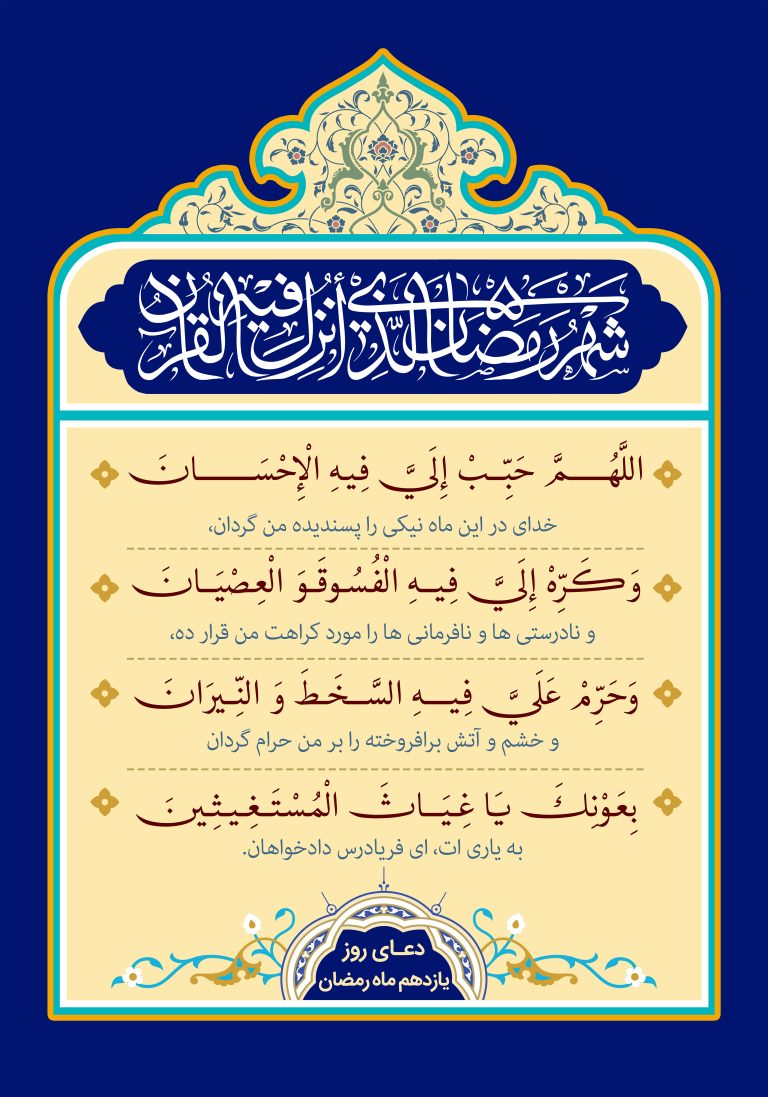 شَهْرُ رَمَضَانَ الَّذِي أُنْزِلَ فِيهِ الْقُرْآنُ
اللَّهُمَّ حَبِّبْ إِلَيَّ فِيهِ الْإِحْسَانَ
خدای در این ماه نیکی را پسندیده من گردان،
وَكَرِّهْ إِلَيَّ فِيهِ الْفُسُوقَوَ الْعِصْيَانَ
و نادرستی ها و نافرمانی ها را مورد کراهت من قرار ده،
وَحَرِّمْ عَلَيَّ فِيهِ السَّخَطَ وَ النِّيرَانَ
و خشم و آتش برافروخته را بر من حرام گردان
بِعَوْنِكَ يَا غِيَاثَ الْمُسْتَغِيثِينَ
به یاری ات، ای فریادرس دادخواهان.
دعای روز
یازدهم ماه رمضان